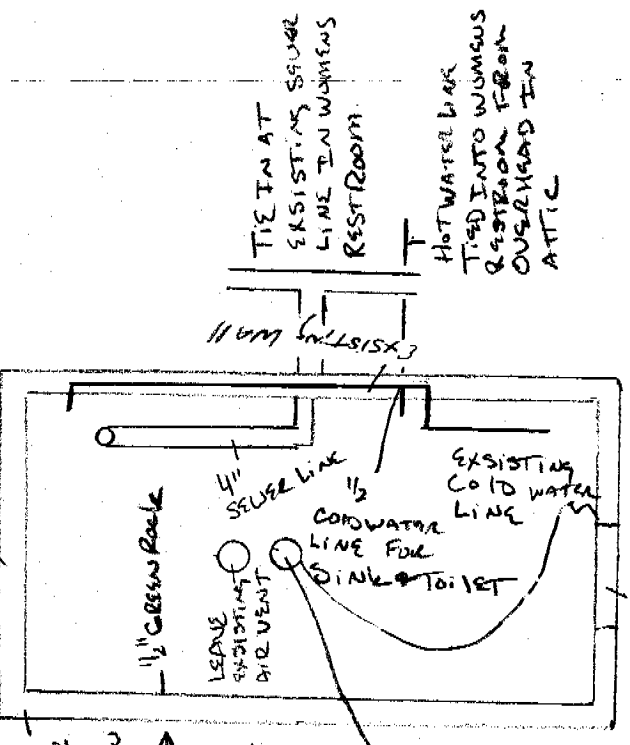 TIE IN AT
EXSISTING SEWER
LINE IN WOMENS
RESTROOM.
HOT WATER LINE
TIED INTO WOMENS
RESTROOM FROM
OVERHEAD IN
ATTIC
EXSISTING WALL
4"
SEWER LINE
1/2
COLD WATER
LINE FOR
SINK & TOILET
EXSISTING
COLD WATER
LINE
1/2" GREEN ROCK
LEAVE
EXSISTING
AIR VENT